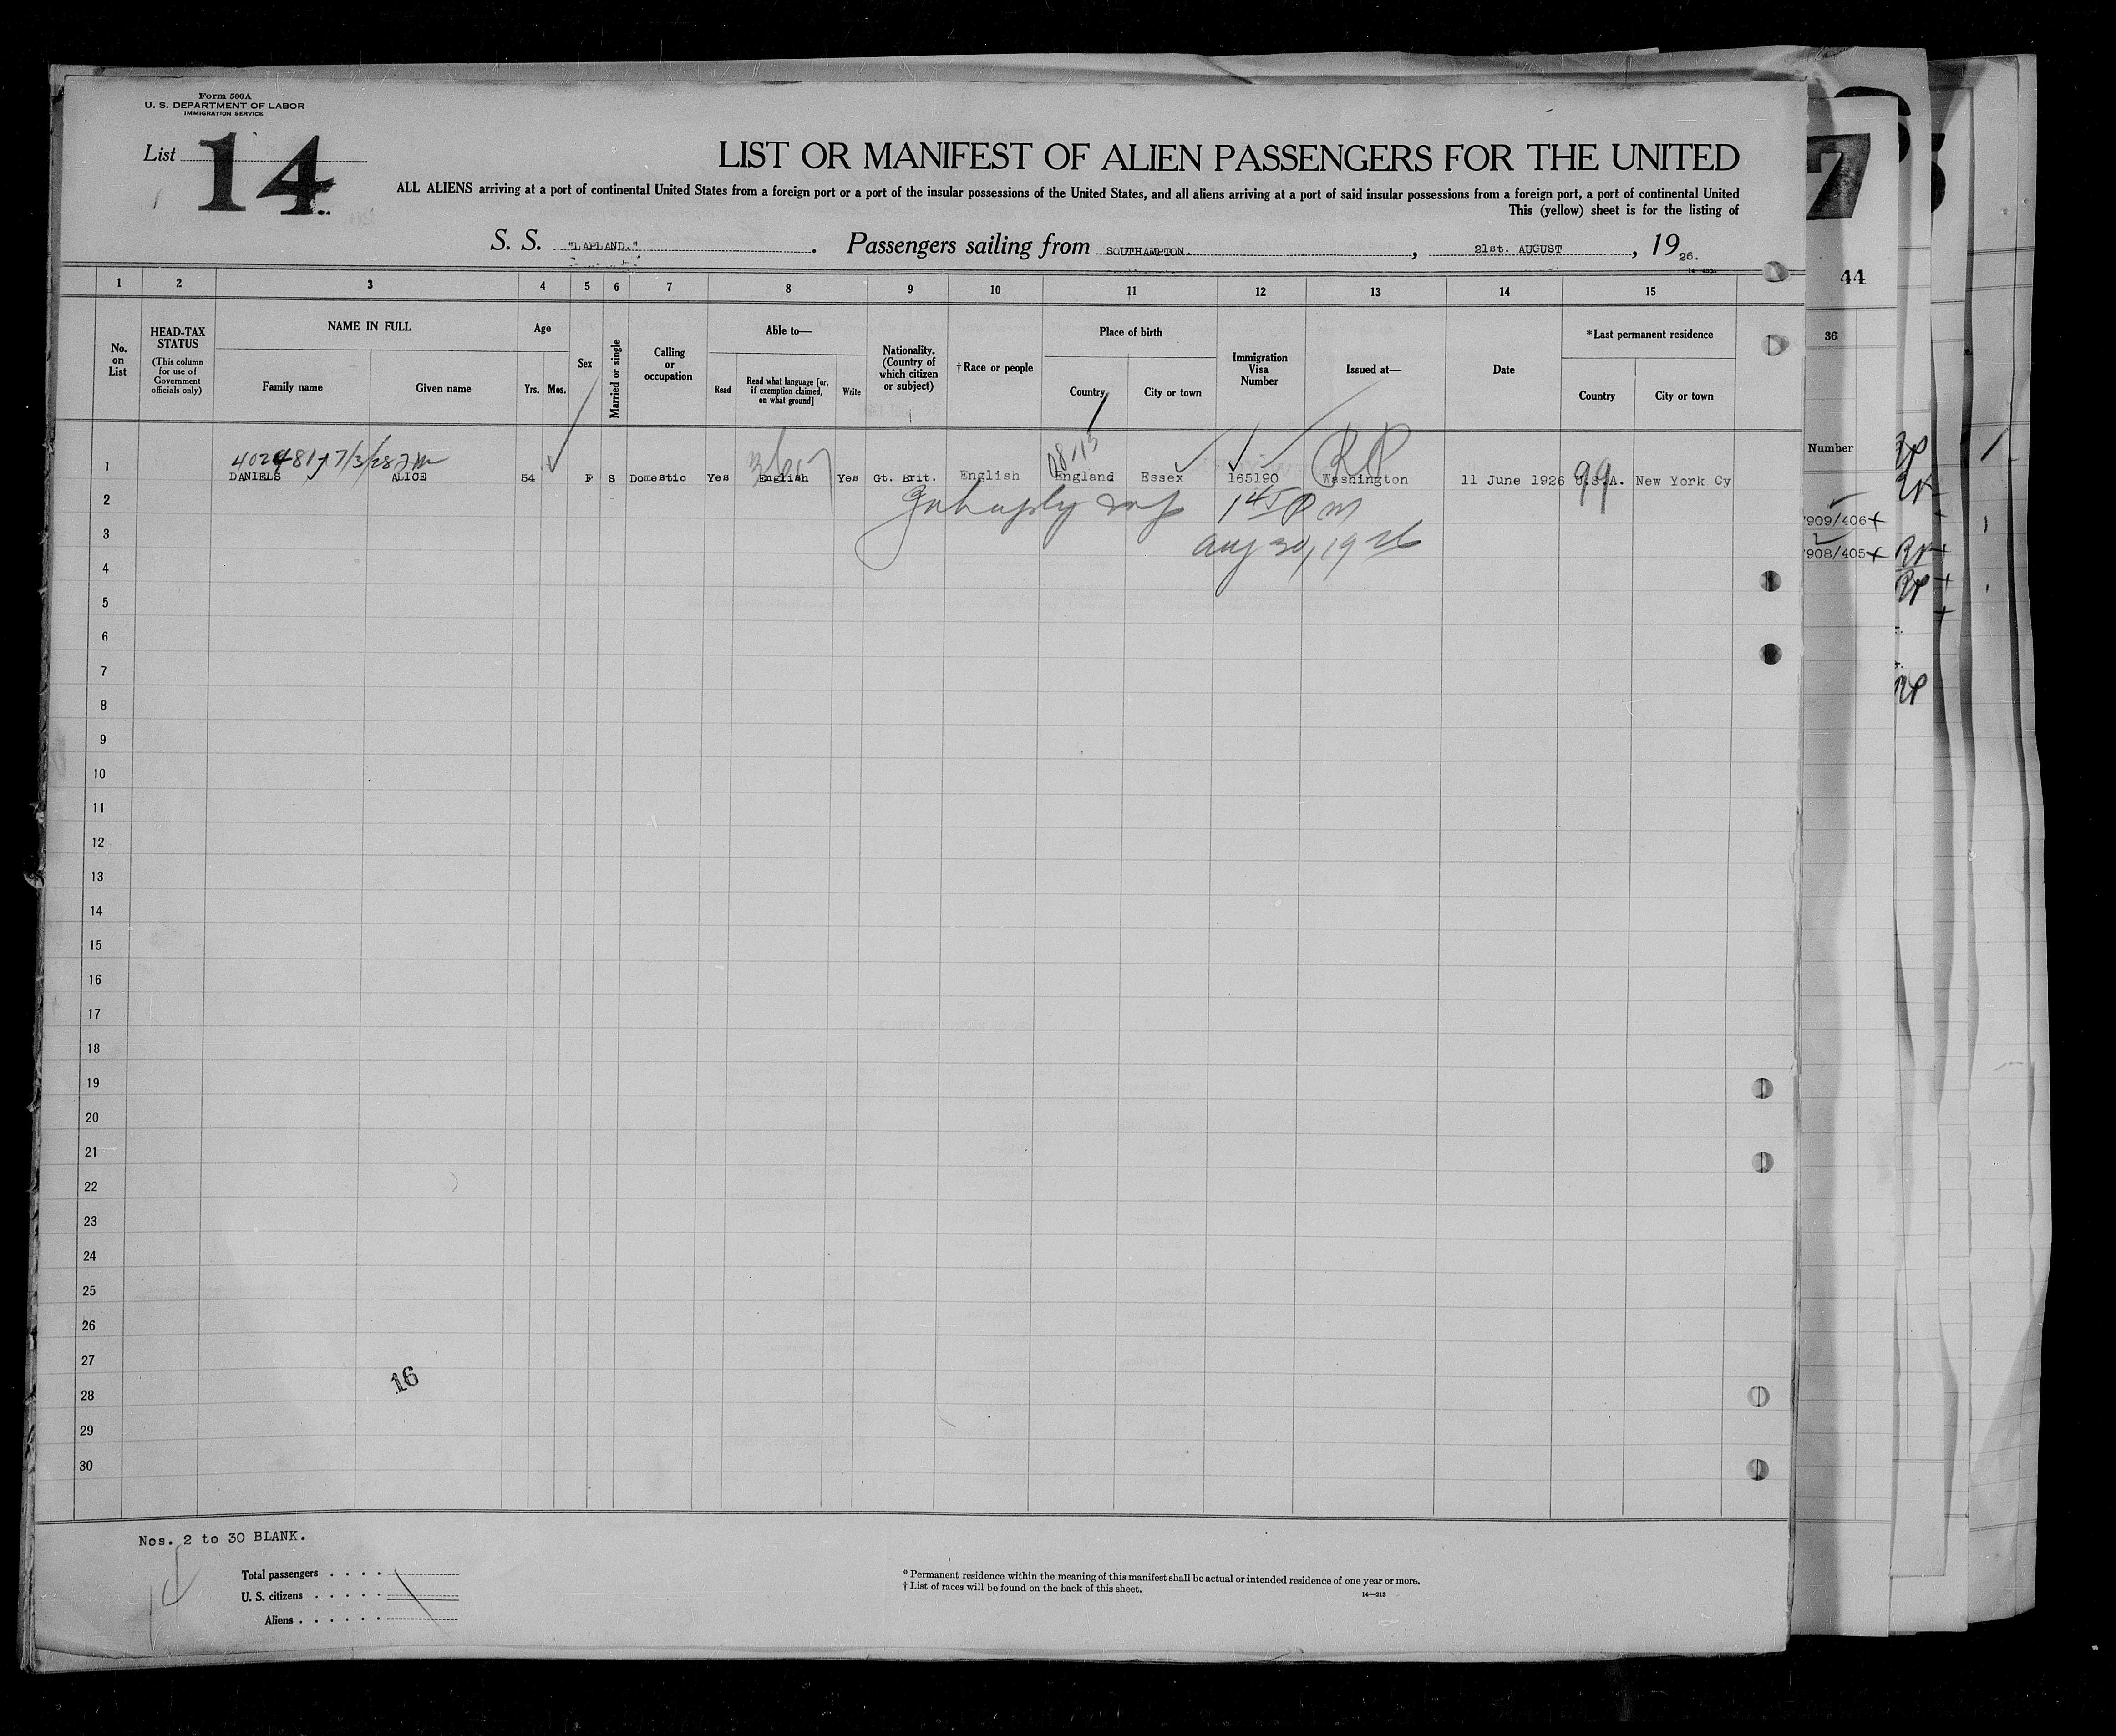 Form 500A
U. S. DEPARTMENT OF LABOR
IMMIGRATION SERVICE
List 14
LIST OR MANIFEST OF ALIEN PASSENGERS FOR THE UNITED
ALL ALIENS arriving at a port of continental United States from a foreign port or a port of the insular possessions of the United States, and all aliens arriving at a port of said insular possessions from a foreign port, a port of continental United
This (yellow) sheet is for the listing of
S. S. "LAPLAND." Passengers sailing from SOUTHAMPTON. , 21st. AUGUST , 19 26.
1 2 3 4 5 6 7 8 9 10 11 12 13 14 15
No. on List
HEAD-TAX STATUS
(This column for use of Government officials only)
NAME IN FULL
Family name
Given name
Age
Yrs. Mos.
Sex
Married or single
Calling or occupation
Able to—
Read
Read what language [or, if exemption claimed, on what ground]
Write
Nationality. (Country of which citizen or subject)
†Race or people
Place of birth
Country
City or town
Immigration Visa Number
Issued at—
Date
*Last permanent residence
Country
City or town
7
44
36
Number
909/406+
908/405+
08/13
RP
99
1 DANIELS ALICE 54 F S Domestic Yes English Yes Gt. Brit. English England Essex 165190 Washington 11 June 1926 U.S.A. New York Cy
Aug 30, 1926
2
3
4
5
6
7
8
9
10
11
12
13
14
15
16
17
18
19
20
21
22
23
24
25
26
27
16
28
29
30
Nos. 2 to 30 BLANK.
Total passengers . . . .
U. S. citizens . . . . .
Aliens . . . . . .
* Permanent residence within the meaning of this manifest shall be actual or intended residence of one year or more.
† List of races will be found on the back of this sheet.
14—213